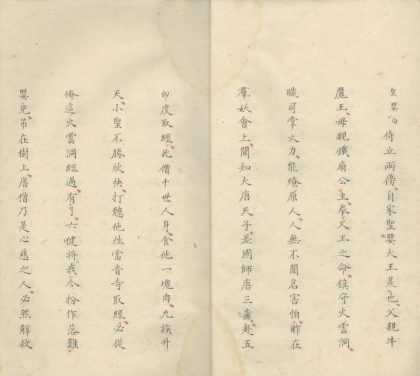 聖嬰白 侍立兩傍自家聖嬰大王是也父親牛
魔王母親鐵扇公主奉父王之命鎮守火雲洞
職司掌火力能療原人人無不聞名害怕昨在
羣妖會上聞知大唐天子差國師唐三藏赴五
印度取經此僧十世人身食他一塊肉九族升
天小聖不勝欣快打聽他往雷音寺取經必從
俺這火雲洞經過有了六健將我今扮作落難
嬰兒吊在樹上唐僧乃是心慈之人必然解救